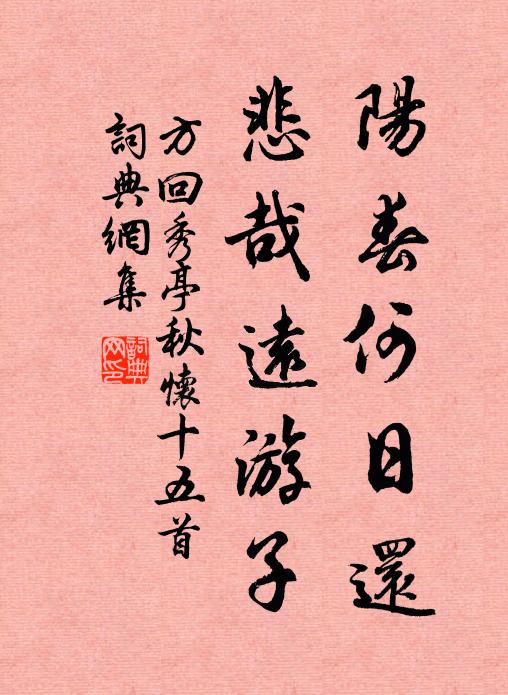 陽春何日還
悲哉遠游子
方回秀亭秋懷十五首
詞典網集
詞典網印